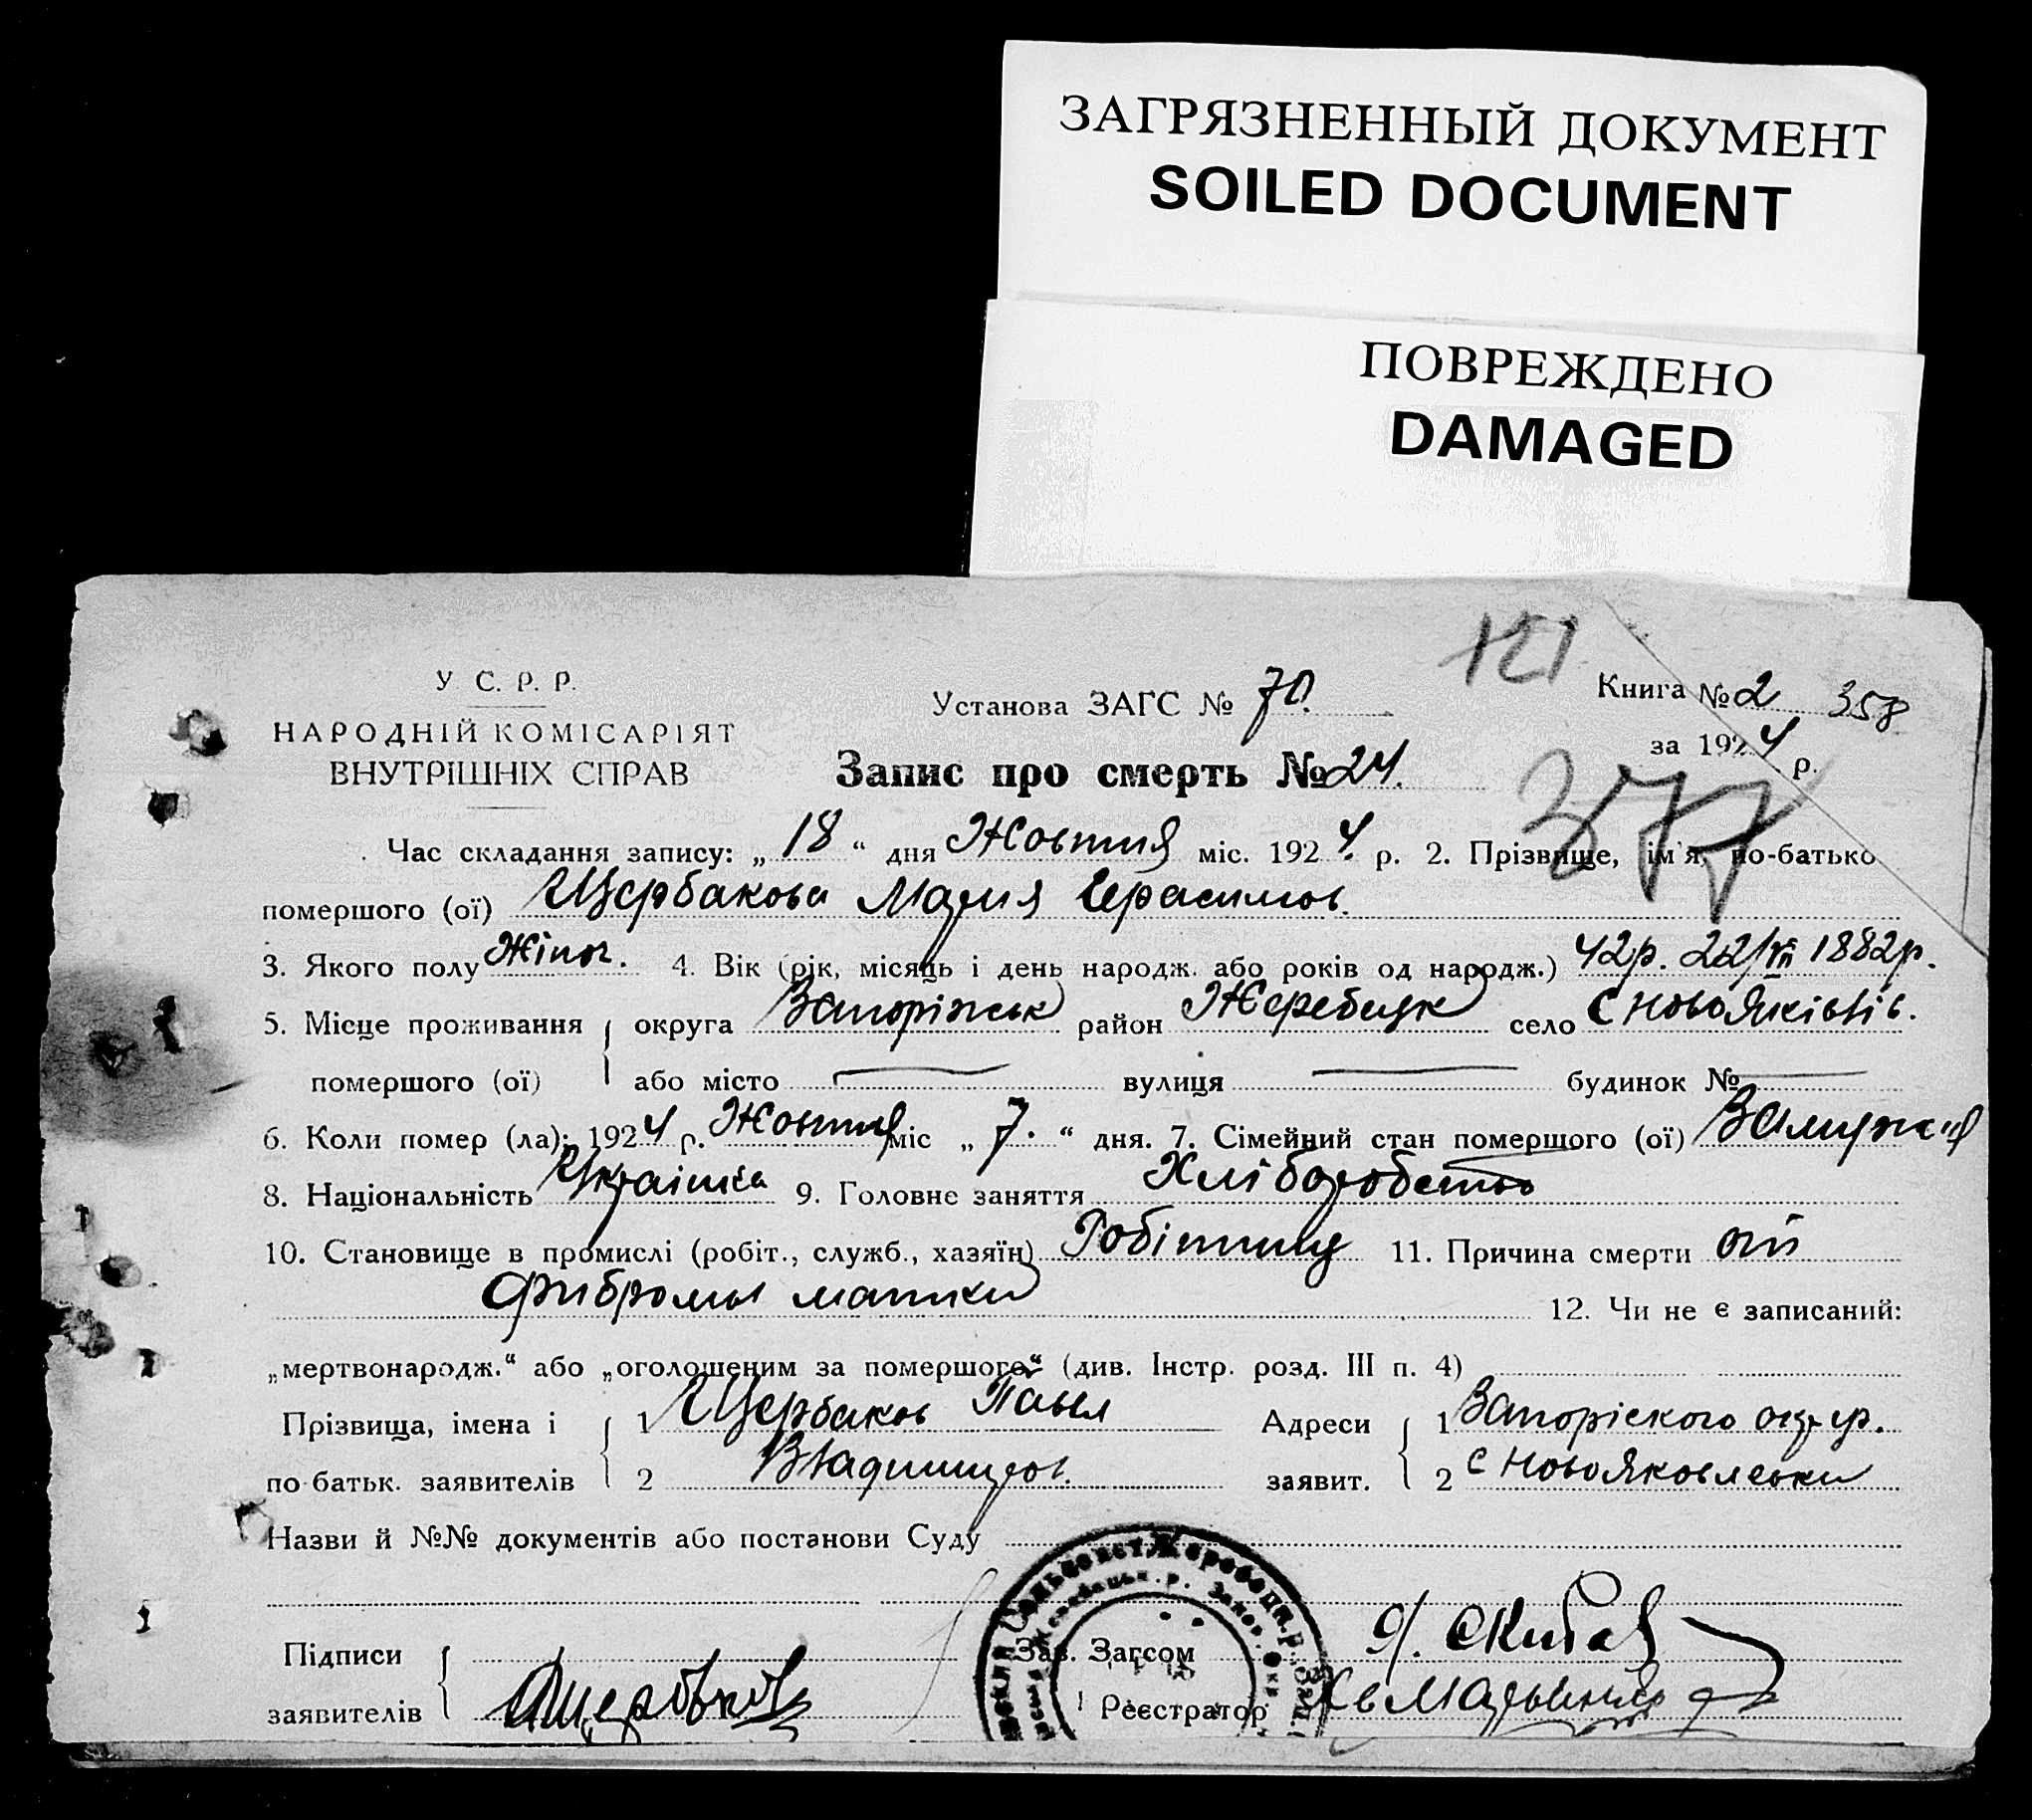 ЗАГРЯЗНЕННЫЙ ДОКУМЕНТ
SOILED DOCUMENT
ПОВРЕЖДЕНО
DAMAGED
121
У С. Р. Р.
Установа ЗАГС № 70.
Книга № 2 358
НАРОДНІЙ КОМІСАРІЯТ
за 1924 р.
ВНУТРІШНІХ СПРАВ
Запис про смерть № 24.
377
Час складання запису: „ 18 “ дня Жовтня міс. 1924. р. 2. Прізвище, ім'я, по-батько
помершого (ої) Щербакова Мария Герасимов.
3. Якого полу Жіноч. 4. Вік (рік, місяць і день народж. або років од народж.) 42р. 22/VII 1882р.
5. Місце проживання округа Запоріжськ район Жеребецьк село с НовоЯківлів.
помершого (ої) або місто вулиця будинок №
6. Коли помер (ла): 1924 р. Жовтня міс „ 7. “ дня. 7. Сімейний стан помершого (ої) Замужня
8. Національність Українка 9. Головне заняття Хліборобство
10. Становище в промислі (робіт., служб., хазяїн) Робітниц 11. Причина смерти от
Фибромы матки 12. Чи не є записаний:
„мертвонародж.“ або „оголошеним за помершого“ (див. Інстр. розд. III п. 4)
Прізвища, імена і 1 Щербаков Павел Адреси 1 Запоріского округ.
по-батьк. заявителів 2 Владимиров. заявит. 2 с НовоЯковлевки
Назви й №№ документів або постанови Суду
Підписи Зав. Загсом
заявителів Реєстратор